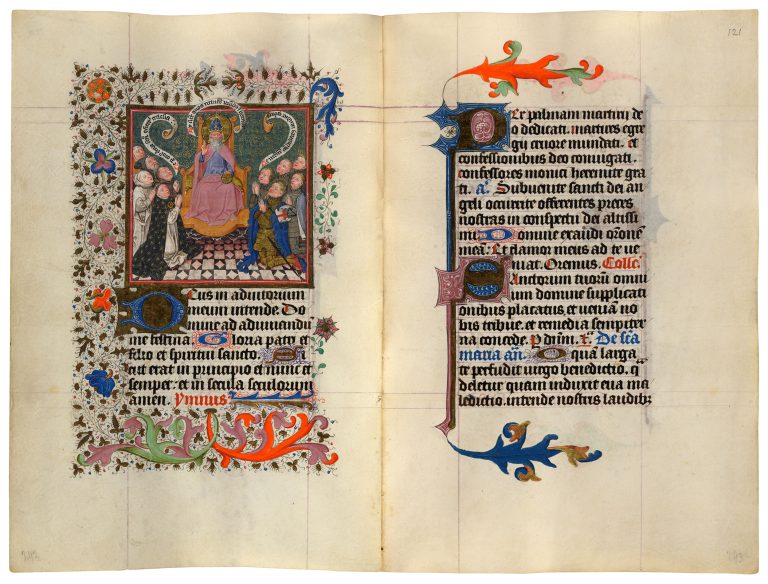 Deus in adiutorium
meum intende. Do
mine ad adiuuandū
me festina Gloria patri et
filio et spiritui sancto. Si
cut erat in principio et nunc et
semper: et in secula seculorum
amen. Ymnus
121
Per palmam martirii de
o dedicati. martires egre
gii cruore mundati. et
confessionibus deo coniugati.
confessores monici heremite gra
ti. añ. Subuenite sancti dei an
geli occurite offerentes preces
nostras in conspectu dei altissi
mi Domine exaudi oronē
meā. Et clamor meus ad te ue
niat. Oremus. Collec̄
Sanctorum tuorū omni
um domine supplicati
onibus placatus et ueniā no
bis tribue. et remedia sempiter
na concede. De scā
maria añ. O quā larga
te perfudit uirgo benedictio. q̄
deletur quam induxit eua ma
ledictio. intende nostris laudibȝ